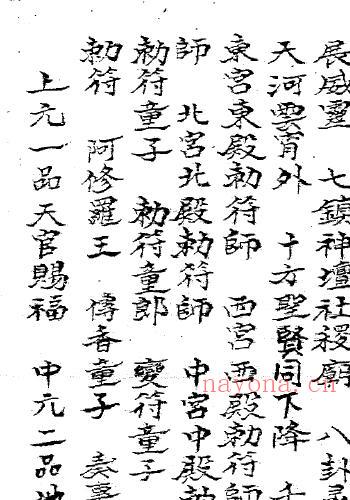 展威靈 七鎮神壇社稷廟 八卦
天河雲霄外 十方聖賢同下降
東宮東殿勅符師 西宮西殿勅符師
師 北宮北殿勅符師 中宮中殿勅
勅符童子 勅符童郎 變符童子
勅符 阿修羅王 傳香童子 奏事
上元一品天官賜福 中元二品地
nayona.cn